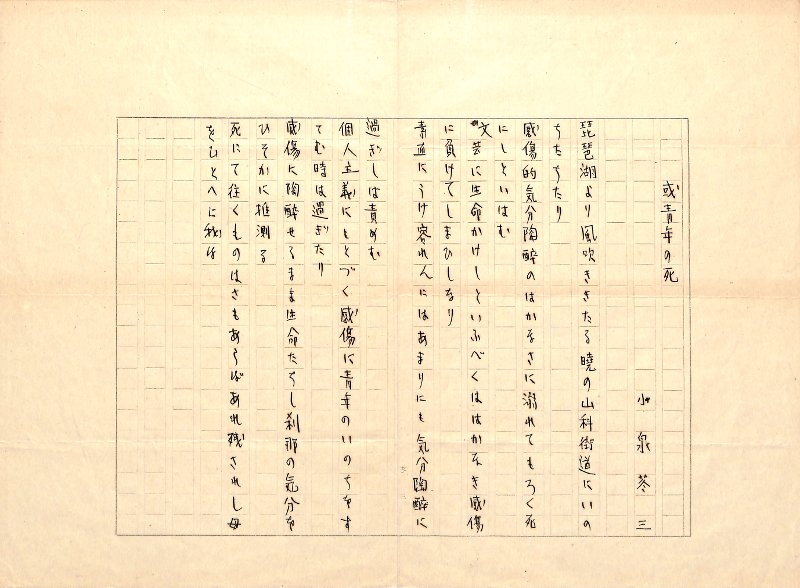 或青年の死
小泉苳三
琵琶湖より風吹ききたる曉の山科街道にいの
ちたちたり
感傷的気分陶醉のはかなさに溺れてもろく死
にしといはむ
文芸に生命かけしといふべくははかなき感傷
に負けてしまひしなり
素直にうけ容れんにはあまりにも気分陶醉に
過ぎしは責めむ
個人主義にもとづく感傷に青年のいのちをす
てむ時は過ぎたり
感傷に陶醉せるまま生命たちし刹那の気分を
ひそかに推測る
死にて往くものはさもあらばあれ残されし母
をひとへに我は